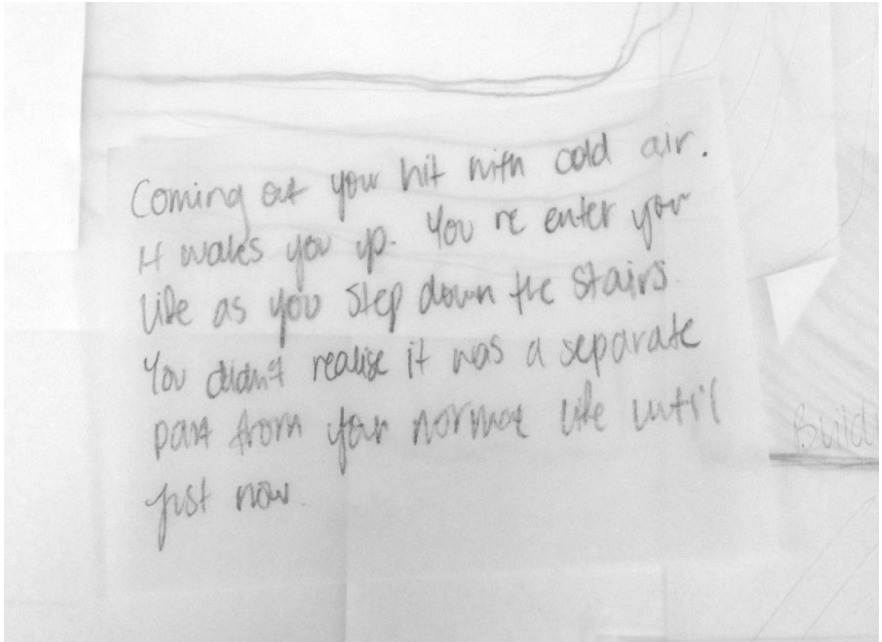 Coming out your hit with cold air.
It wakes you up. You re enter your
life as you step down the stairs.
You didn't realise it was a separate
part from your normal life until
just now.
Build